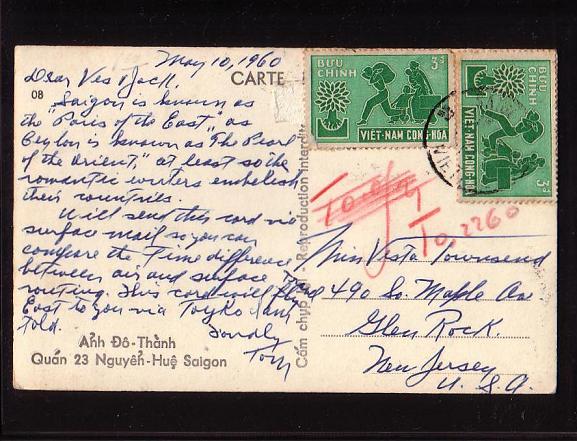 May 10, 1960
Dear Ves & Jack,
Saigon is known as
the "Paris of the East", as
Ceylon is known as The Pearl
of the Orient," at least so the
romantic writers embelish
their countries.
Will send this card via
surface mail so you can
compare the time difference
between air and surface
routing. This card will
East to you via Toyko I am
told.
Fondly
Tom
08
CARTE
Ảnh Đô-Thành
Quán 23 Nguyễn-Huệ Saigon
Reproduction interdite
Cấm chụp lại
BƯU CHÍNH
3đ
VIỆT-NAM CỘNG-HÒA
BƯU CHÍNH
3đ
VIỆT-NAM CỘNG-HÒA
T0,2260
Miss Vesta Townsend
490 So. Maple Ave
Glen Rock.
New Jersey
U. S. A.